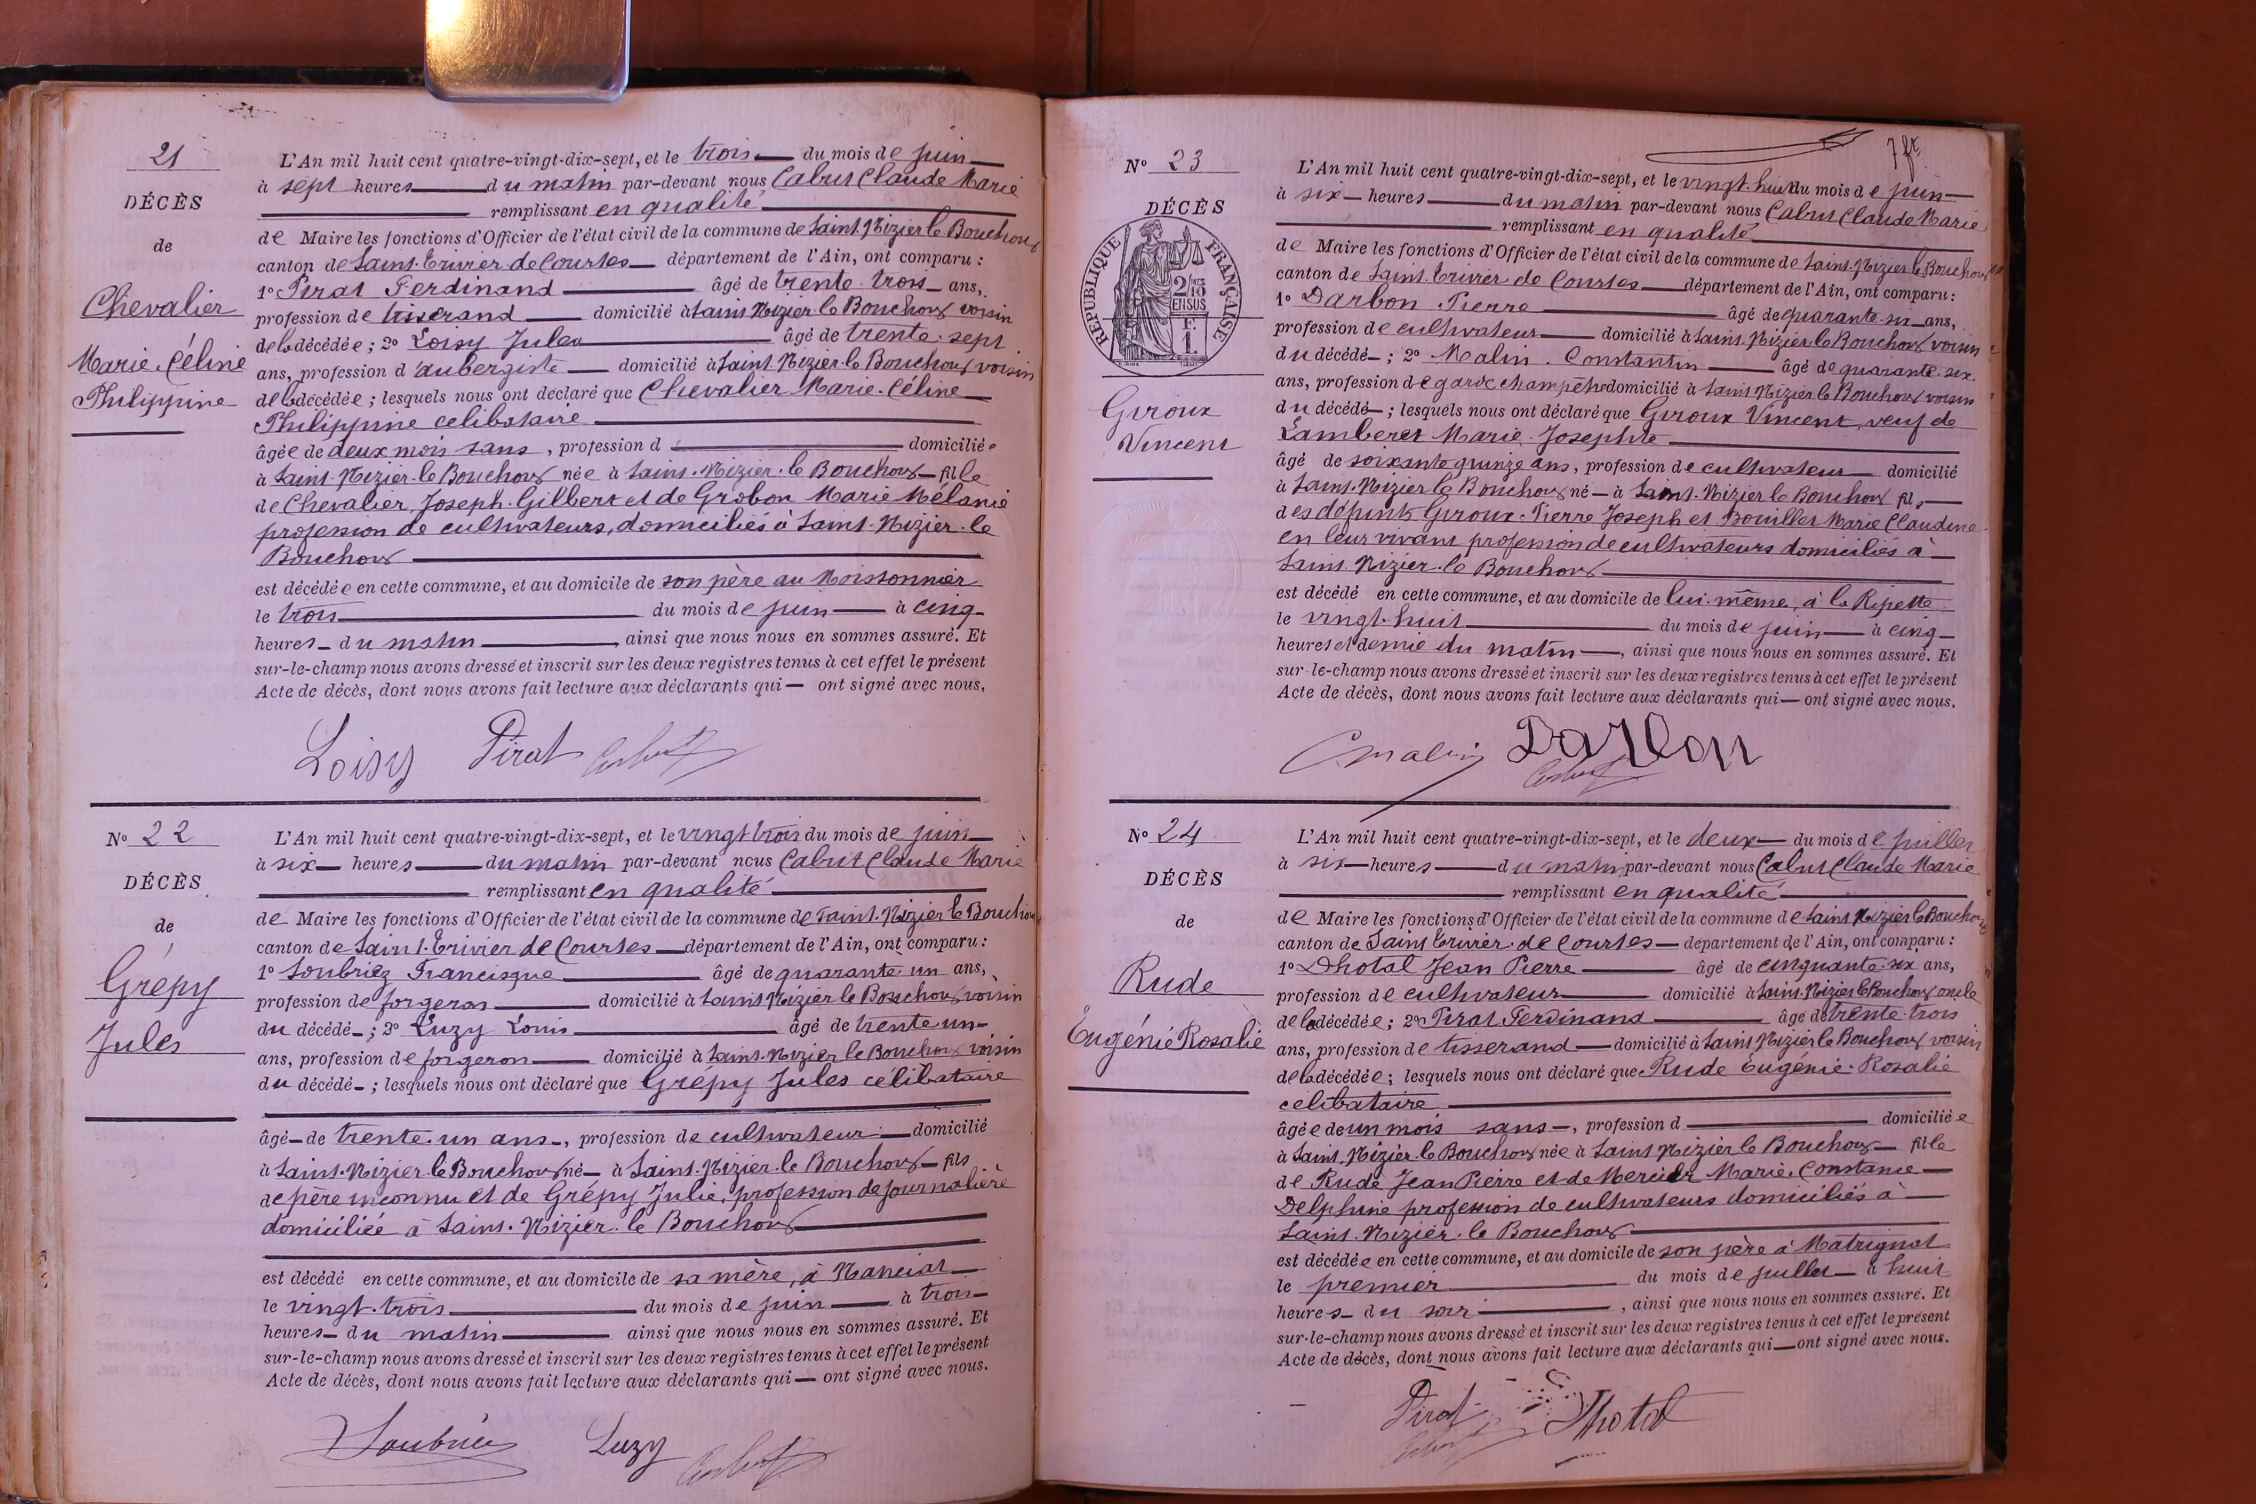 21
DÉCÈS
de
Chevalier
Marie Céline
Philippine
L'An mil huit cent quatre-vingt-dix-sept, et le trois du mois de juin
à sept heures du matin par-devant nous Cabut Claude Marie
remplissant en qualité
de Maire les fonctions d'Officier de l'état civil de la commune de Saint-Nizier le Bouchoux
canton de Saint-Trivier de Courtes département de l'Ain, ont comparu :
1° Pirat Ferdinand âgé de trente-trois ans,
profession de tisserand domicilié à Saint Nizier le Bouchoux voisin
de la décédée ; 2° Loisy Jules âgé de trente-sept
ans, profession d'aubergiste domicilié à Saint-Nizier-le Bouchoux voisin
de la décédée ; lesquels nous ont déclaré que Chevalier Marie-Céline
Philippine celibataire
âgée de deux mois sans, profession d domiciliée
à Saint-Nizier-le Bouchoux née à Saint-Nizier-le Bouchoux fille
de Chevalier Joseph-Gilbert et de Grobon Marie Mélanie
profession de cultivateurs, domiciliés à Saint-Nizier-le
Bouchoux
est décédée en cette commune, et au domicile de son père au Moissonnier
le trois du mois de juin à cinq
heures du matin, ainsi que nous nous en sommes assuré. Et
sur-le-champ nous avons dressé et inscrit sur les deux registres tenus à cet effet le présent
Acte de décès, dont nous avons fait lecture aux déclarants qui — ont signé avec nous.
Loisy Pirat Cabut
N° 22
DÉCÈS
de
Grépy
Jules
L'An mil huit cent quatre-vingt-dix-sept, et le vingt trois du mois de juin
à six heures du matin par-devant nous Cabut Claude Marie
remplissant en qualité
de Maire les fonctions d'Officier de l'état civil de la commune de Saint-Nizier le Bouchoux
canton de Saint-Trivier de Courtes département de l'Ain, ont comparu :
1° Soubriez Francisque âgé de quarante-un ans,
profession de forgeron domicilié à Saint Nizier le Bouchoux voisin
du décédé ; 2° Luzy Louis âgé de trente-un
ans, profession de forgeron domicilié à Saint-Nizier le Bouchoux voisin
du décédé ; lesquels nous ont déclaré que Grépy Jules célibataire
âgé de trente-un ans, profession de cultivateur domicilié
à Saint-Nizier le Bouchoux né à Saint-Nizier-le Bouchoux fils
de père inconnu et de Grépy Julie, profession de journalière
domiciliée à Saint-Nizier-le Bouchoux
est décédé en cette commune, et au domicile de sa mère, à Manciat
le vingt-trois du mois de juin à trois
heures du matin ainsi que nous nous en sommes assuré. Et
sur-le-champ nous avons dressé et inscrit sur les deux registres tenus à cet effet le présent
Acte de décès, dont nous avons fait lecture aux déclarants qui — ont signé avec nous.
Soubriez Luzy Cabut
7 ft
N° 23
DÉCÈS
RÉPUBLIQUE FRANÇAISE
2/10 EN SUS
1 F.
Giroux
Vincent
L'An mil huit cent quatre-vingt-dix-sept, et le vingt-huit du mois de juin
à six heures du matin par-devant nous Cabut Claude Marie
remplissant en qualité
de Maire les fonctions d'Officier de l'état civil de la commune de Saint-Nizier le Bouchoux
canton de Saint-Trivier de Courtes département de l'Ain, ont comparu :
1° Darbon Pierre âgé de quarante-six ans,
profession de cultivateur domicilié à Saint-Nizier le Bouchoux voisin
du décédé ; 2° Malin Constantin âgé de quarante-six
ans, profession de garde champêtre domicilié à Saint Nizier le Bouchoux voisin
du décédé ; lesquels nous ont déclaré que Giroux Vincent, veuf de
Lamberet Marie-Josephte
âgé de soixante quinze ans, profession de cultivateur domicilié
à Saint-Nizier le Bouchoux né à Saint-Nizier le Bouchoux fils
des défunts Giroux Pierre Joseph et Bouillet Marie Claudine
en leur vivant profession de cultivateurs domiciliés à
Saint Nizier-le Bouchoux
est décédé en cette commune, et au domicile de lui-même, à la Ripette
le vingt-huit du mois de juin à cinq
heures et demie du matin, ainsi que nous nous en sommes assuré. Et
sur-le-champ nous avons dressé et inscrit sur les deux registres tenus à cet effet le présent
Acte de décès, dont nous avons fait lecture aux déclarants qui — ont signé avec nous.
C Malin Darbon
Cabut
N° 24
DÉCÈS
de
Rude
Eugénie Rosalie
L'An mil huit cent quatre-vingt-dix-sept, et le deux du mois de juillet
à six heures du matin par-devant nous Cabut Claude Marie
remplissant en qualité
de Maire les fonctions d'Officier de l'état civil de la commune de Saint Nizier le Bouchoux
canton de Saint Trivier de Courtes département de l'Ain, ont comparu :
1° Dhotal Jean Pierre âgé de cinquante-six ans,
profession de cultivateur domicilié à Saint-Nizier le Bouchoux oncle
de la décédée ; 2° Pirat Ferdinand âgé de trente-trois
ans, profession de tisserand domicilié à Saint Nizier le Bouchoux voisin
de la décédée ; lesquels nous ont déclaré que Rude Eugénie-Rosalie
celibataire
âgée de un mois sans, profession d domiciliée
à Saint-Nizier-le Bouchoux née à Saint Nizier le Bouchoux fille
de Rude Jean Pierre et de Mercier Marie-Constance
Delphine profession de cultivateurs domiciliés à
Saint-Nizier-le Bouchoux
est décédée en cette commune, et au domicile de son père à Matrignat
le premier du mois de juillet à huit
heures du soir, ainsi que nous nous en sommes assuré. Et
sur-le-champ nous avons dressé et inscrit sur les deux registres tenus à cet effet le présent
Acte de décès, dont nous avons fait lecture aux déclarants qui — ont signé avec nous.
Pirat Dhotal
Cabut